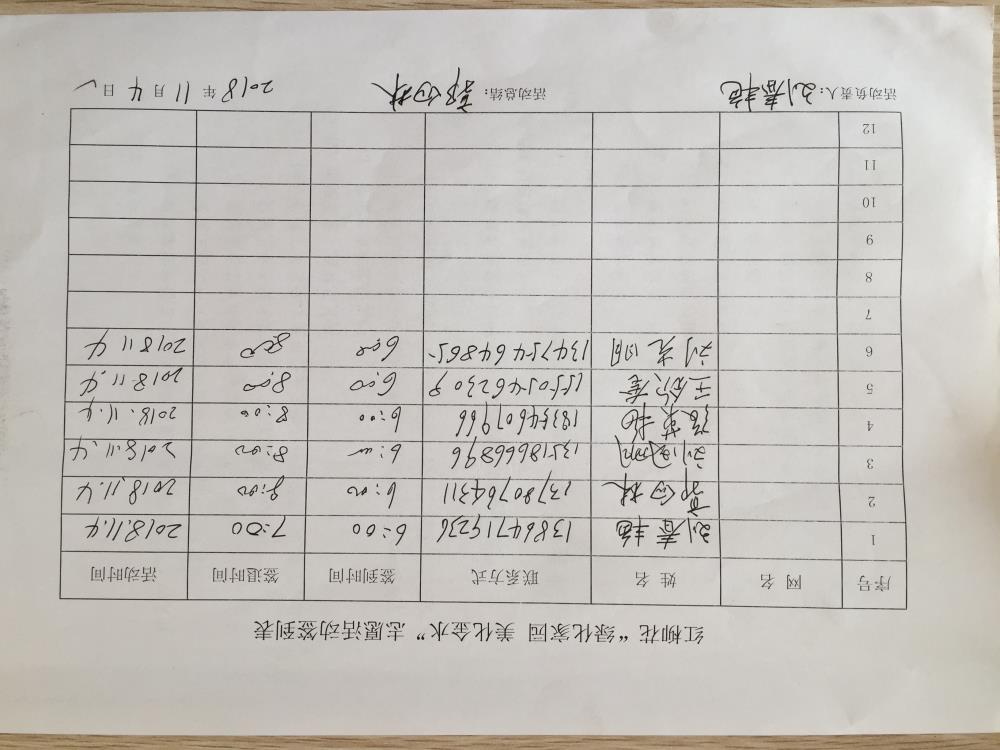 红柳花“绿化家园 美化金水”志愿活动签到表
序号 网 名 姓 名 联系方式 签到时间 签退时间 活动时间
1 刘春艳 13864715236 6:00 7:00 2018.11.4
2 13780764311 6:00 8:00 2018.11.4
3 13518666896 6:00 8:00 2018.11.4
4 18354607966 6:00 8:00 2018.11.4
5 15505462309 6:00 8:00 2018.11.4
6 6:00 8:00 2018 11 4
7
8
9
10
11
12
活动负责人：刘春艳 活动总结： 2018年11月4日